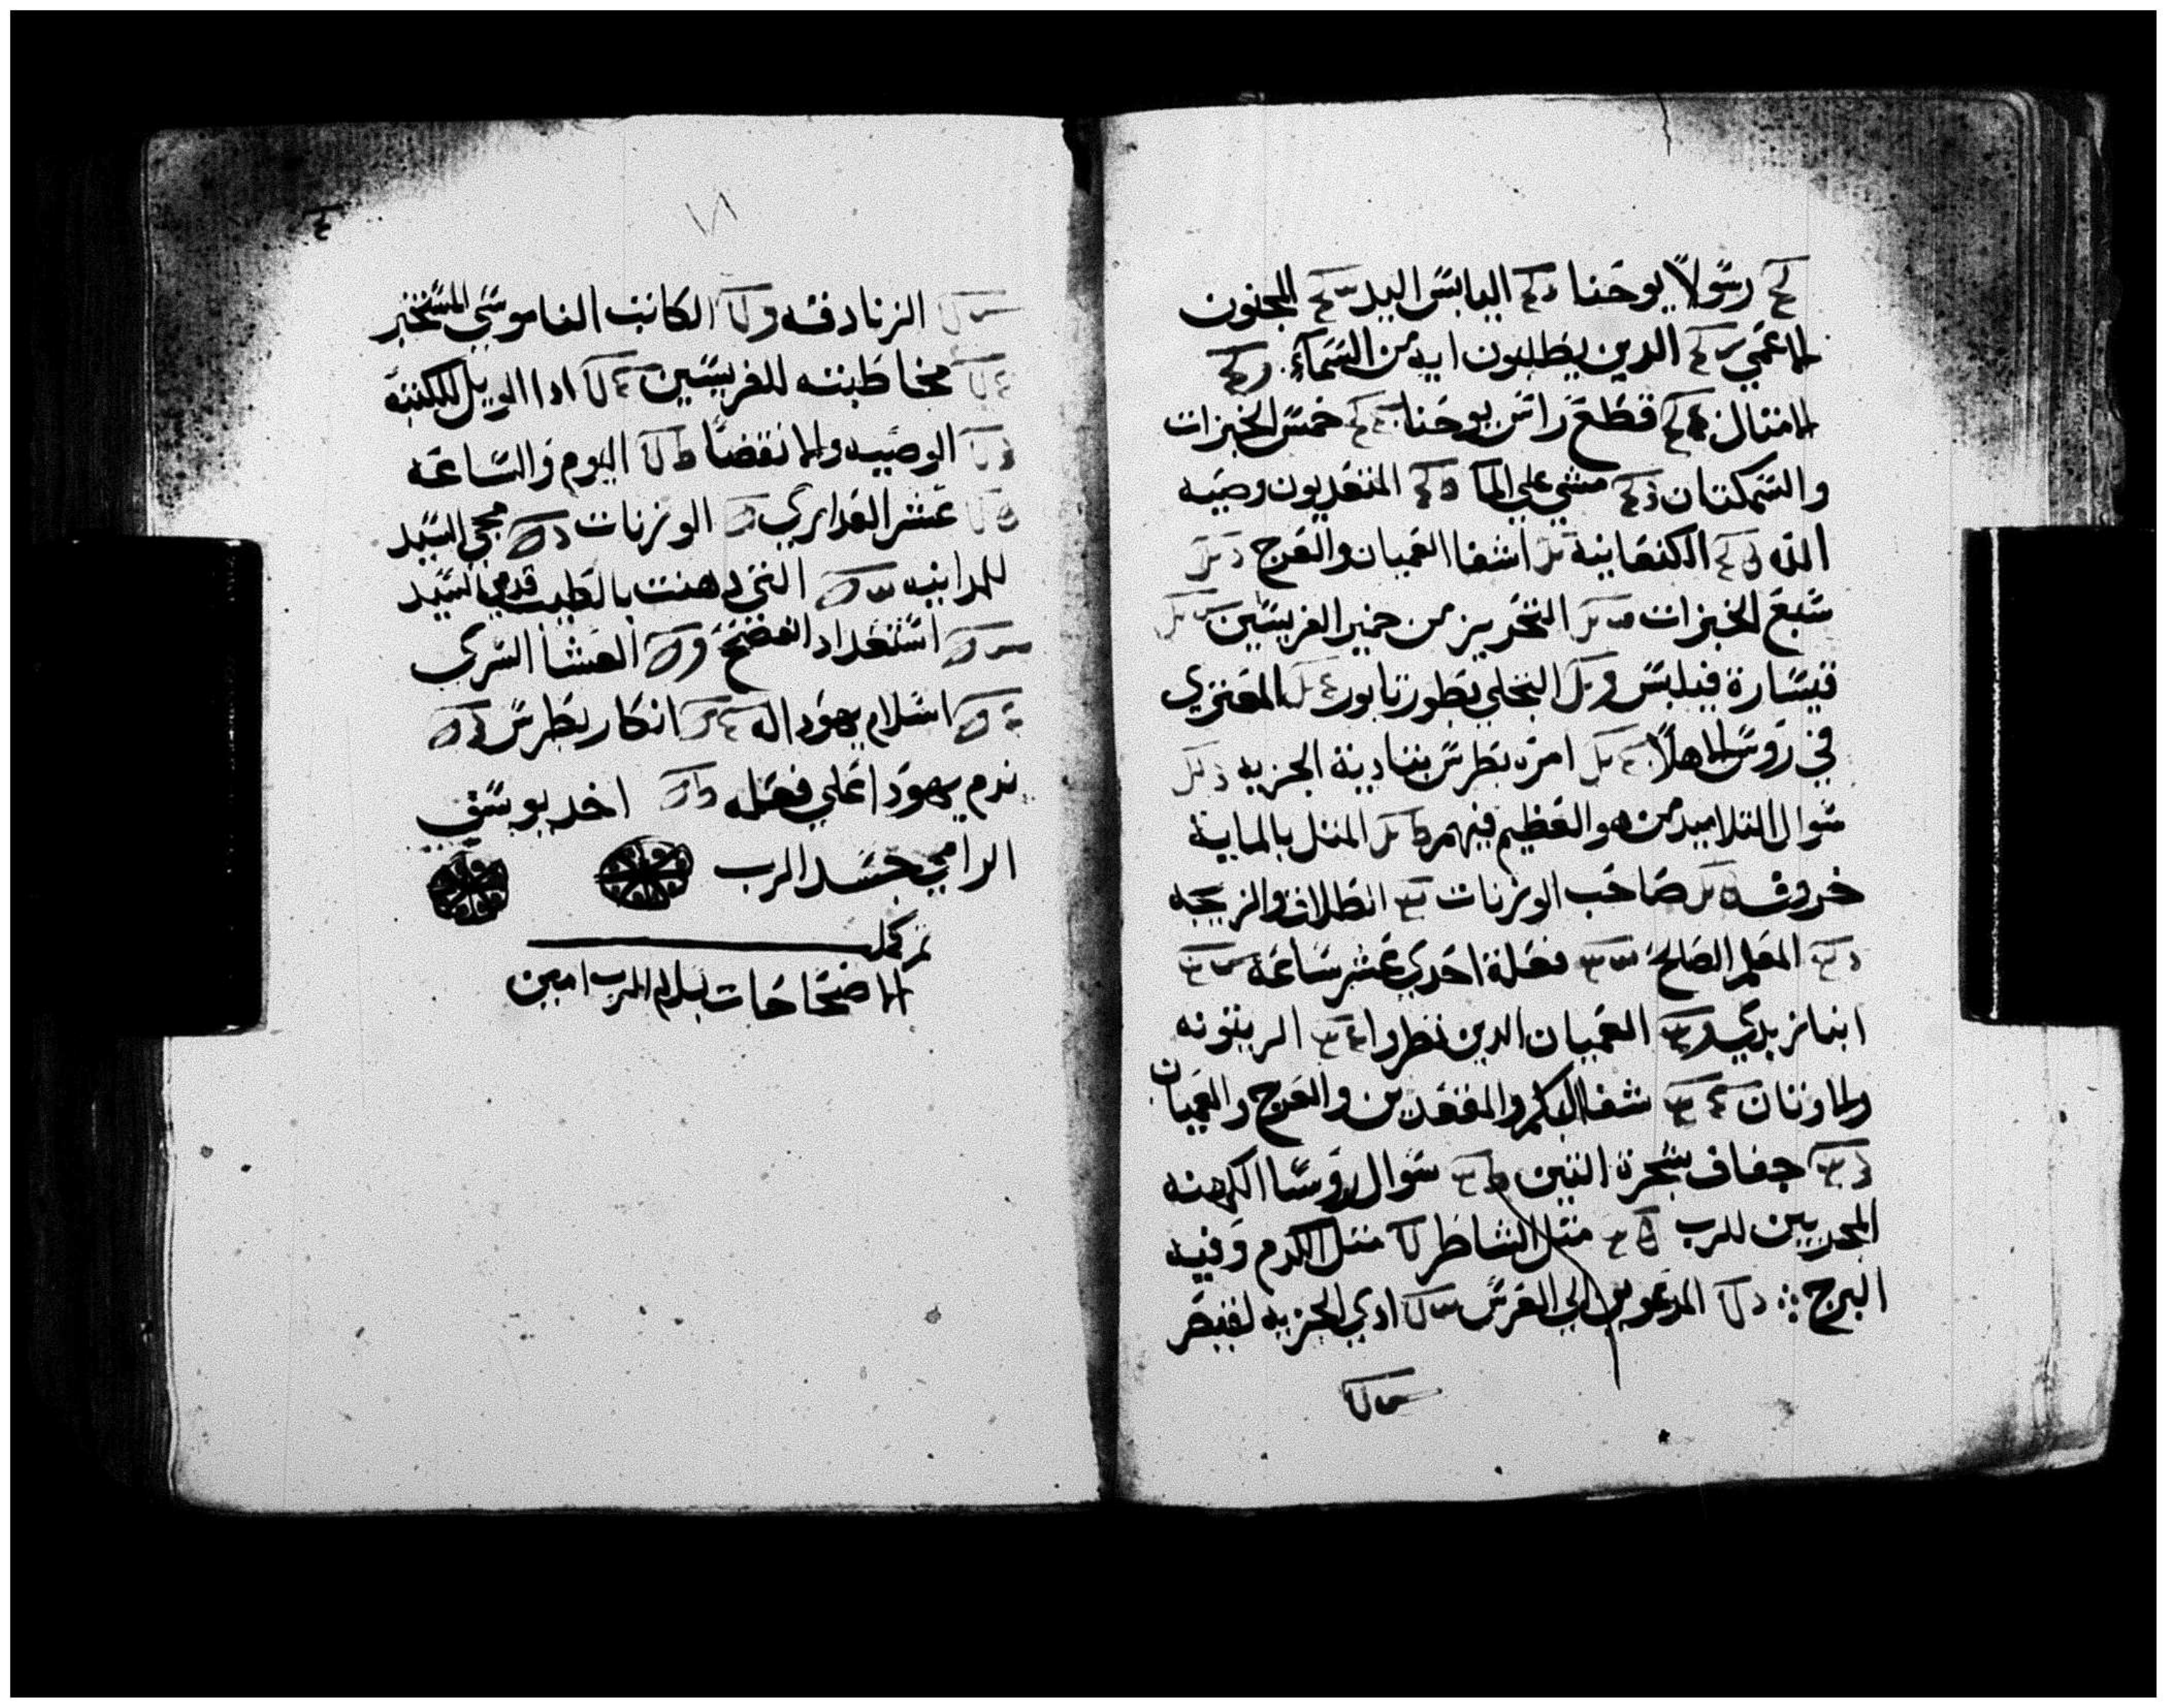 رسولا يوحنا اليابس اليد المجنون
الاعمي الدين يطلبون ايه من السماء
الامتال قطع راس يوحنا خمس الخبزات
والسمكتان مشي علي الما المتعديون وصيه
الله الكنعانية اشفا العميان والعرج
سبع الخبزات التحريز من خمير الفريسين
قيسارة فيلبس التجلي بطور تابور المعتري
في روس الاهلا امره بطرس بتادية الجزيه
سوال التلاميد من هو العظيم فيهم المتل بالماية
خروف صاحب الوزنات انطلاق الزيجه
المعلم الصالح فعلة احدي عشر ساعة
ابنا زبدي العميان الدين نظروا الزيتونه
والاوتان شفا البكم والمقعدين والعرج والعميان
جفاف شجرة التين سوال روسا الكهنه
المجربين للرب متل الشاطر متل الكرم وفيه
البرج المدعوين الي العرس ادي الجزيه لقيصر
٧١
الزنادقه الكاتب الناموسي المستخبر
مخاطبته للفريسين ادا الويل للكتبه
الوصيه والانقضا اليوم والساعه
عشر العداري الوزنات مجي السيد
للمداينه التي دهنت بالطيب قدمي السيد
استعداد الفصح العشا السري
اسلام يهودا له انكار بطرس
ندم يهودا علي فعله اخد يوسف
الرامي جسد الرب
تم كمل
الاصحاحات بسلام الرب امين